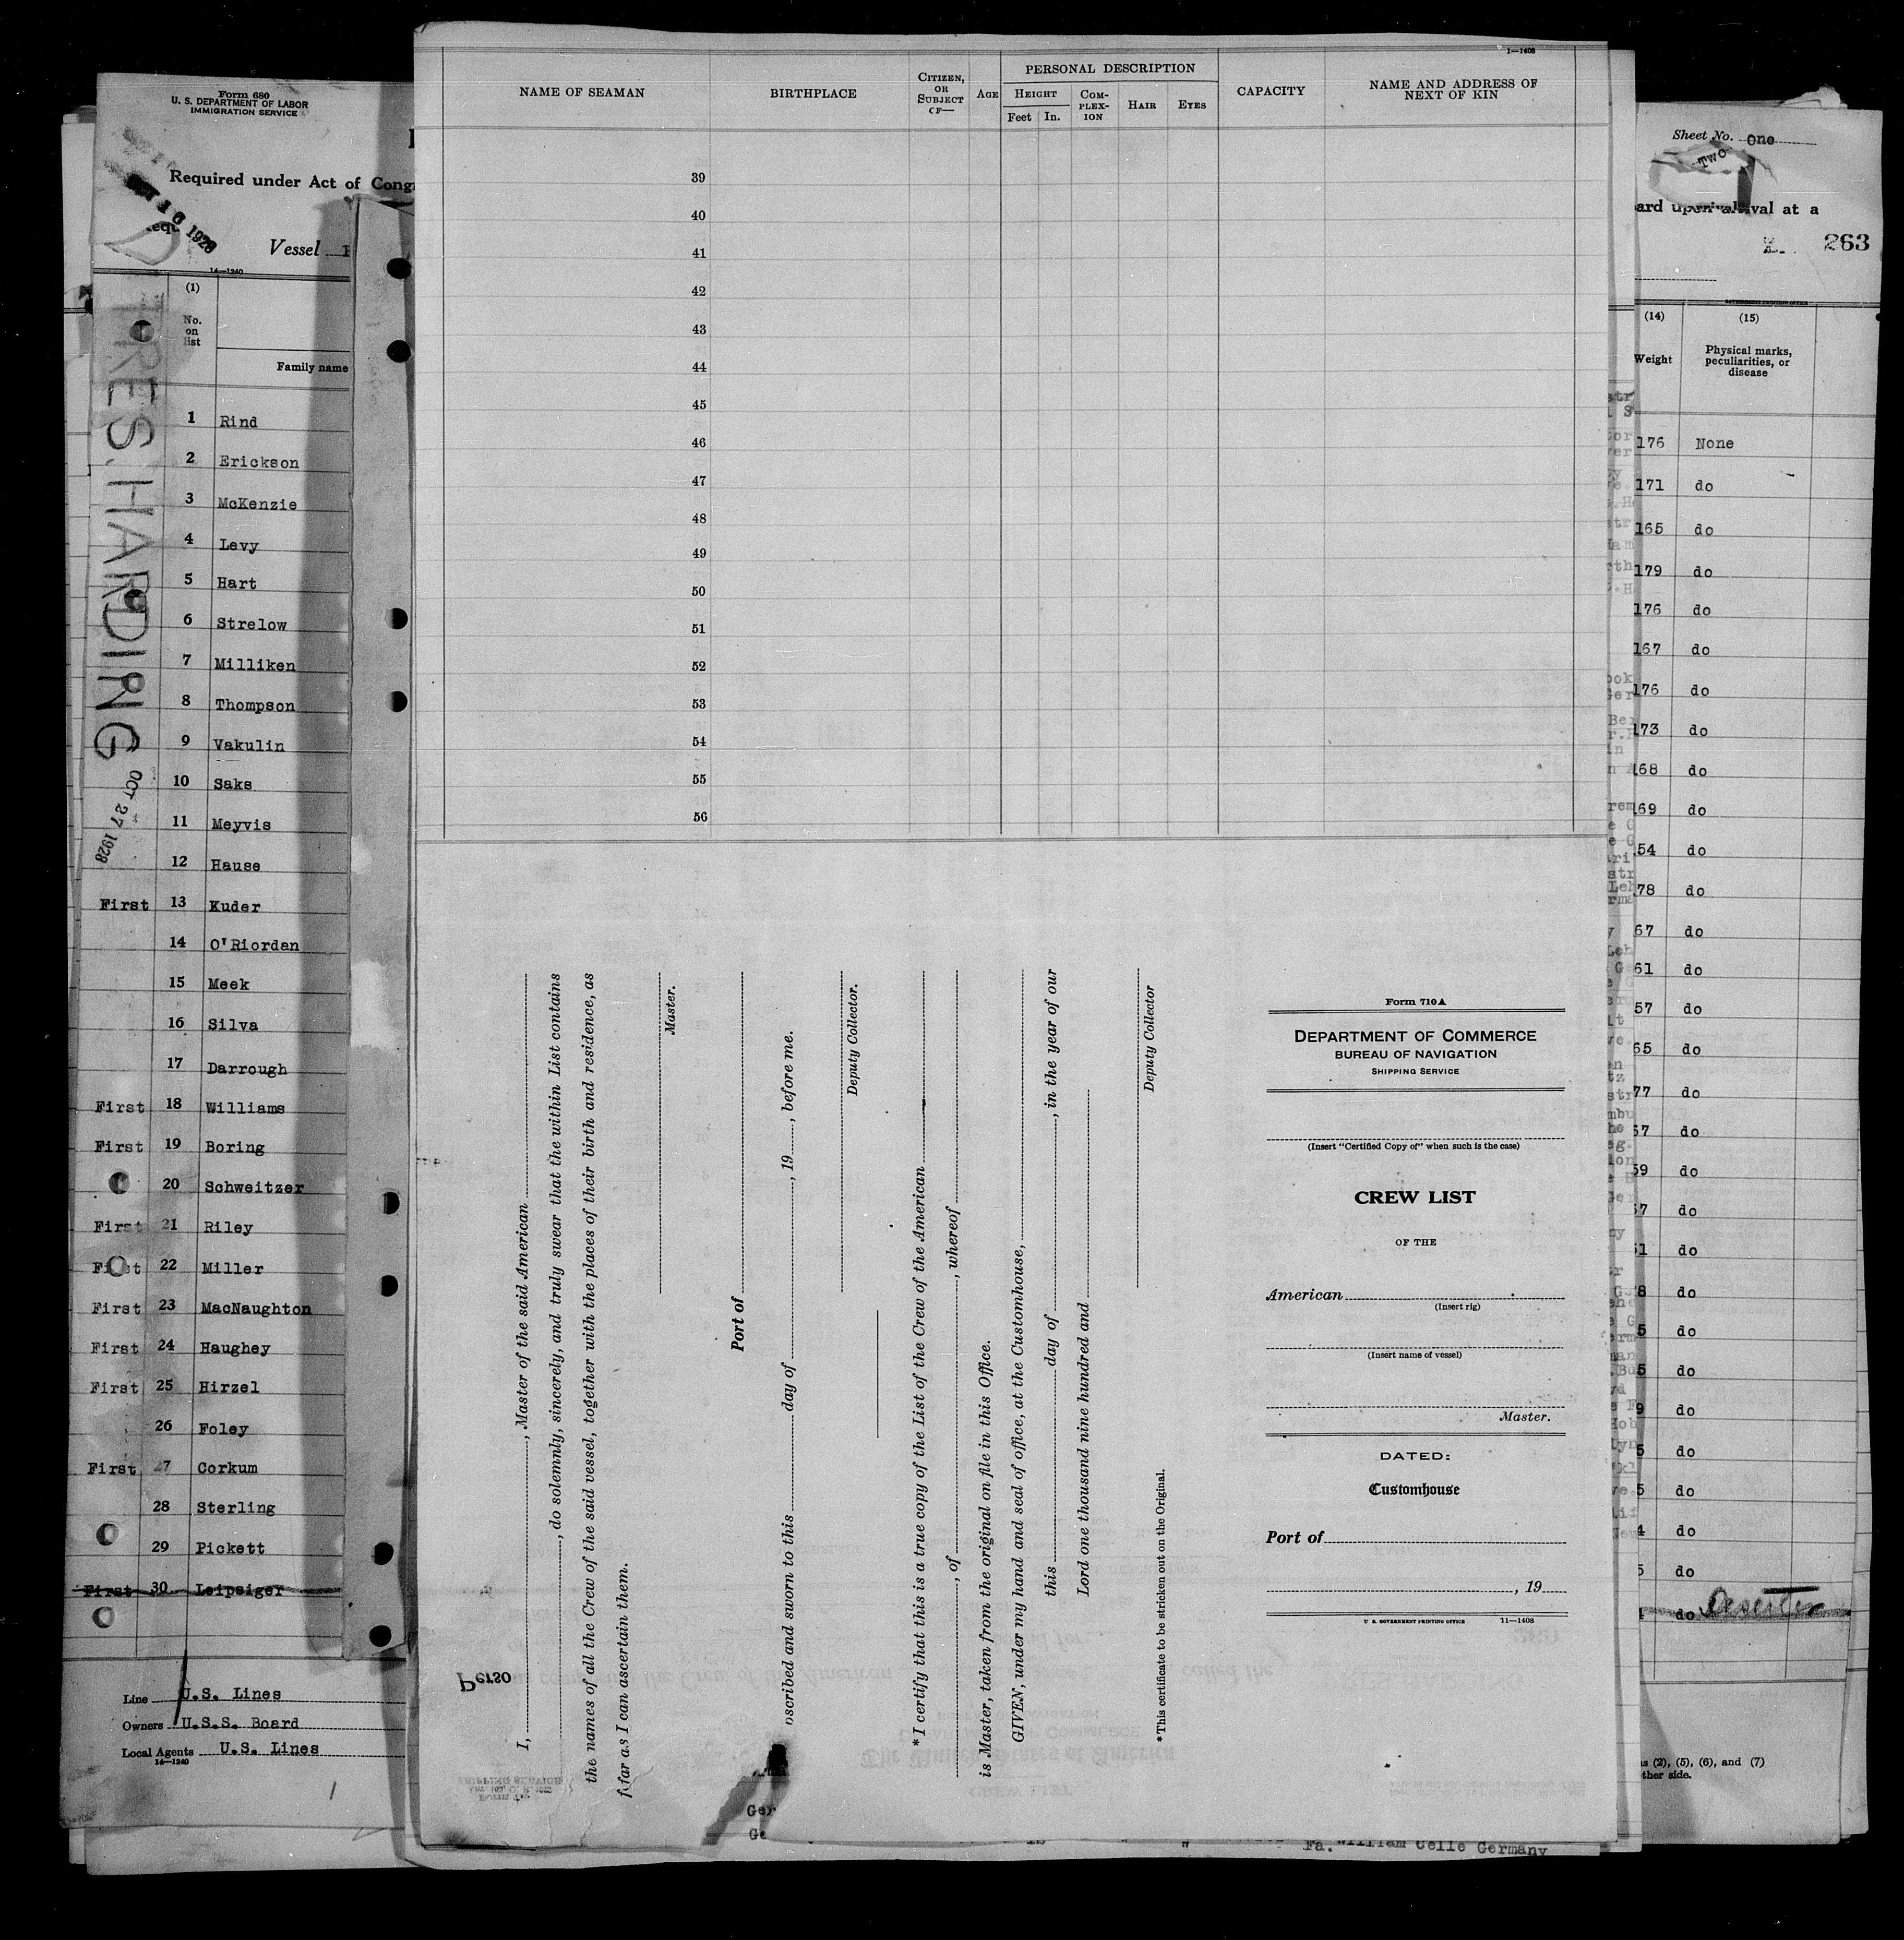 Form 680
U. S. DEPARTMENT OF LABOR
IMMIGRATION SERVICE
Required under Act of Cong
1928
Vessel
14—1240
(1)
No.
on
list
Family name
PRES. HARDING
OCT 27 1928
1 Rind
2 Erickson
3 McKenzie
4 Levy
5 Hart
6 Strelow
7 Milliken
8 Thompson
9 Vakulin
10 Saks
11 Meyvis
12 Hause
First 13 Kuder
14 O'Riordan
15 Meek
16 Silva
17 Darrough
First 18 Williams
First 19 Boring
20 Schweitzer
First 21 Riley
First 22 Miller
First 23 MacNaughton
First 24 Haughey
First 25 Hirzel
26 Foley
First 27 Corkum
28 Sterling
29 Pickett
First 30 Leipziger
Line U.S. Lines
Owners U.S.S. Board
Local Agents U.S. Lines
14—1240
1—1408
NAME OF SEAMAN
BIRTHPLACE
CITIZEN,
OR
SUBJECT
OF—
AGE
PERSONAL DESCRIPTION
HEIGHT
Feet In.
COM-
PLEX-
ION
HAIR
EYES
CAPACITY
NAME AND ADDRESS OF
NEXT OF KIN
39
40
41
42
43
44
45
46
47
48
49
50
51
52
53
54
55
56
I, , Master of the said American
, do solemnly, sincerely, and truly swear that the within List contains
the names of all the Crew of the said vessel, together with the places of their birth and residence, as
far as I can ascertain them.
Master.
Port of
oscribed and sworn to this day of , 19 , before me.
Deputy Collector.
*I certify that this is a true copy of the List of the Crew of the American
, of , whereof
is Master, taken from the original on file in this Office.
GIVEN, under my hand and seal of office, at the Customhouse,
this day of , in the year of our
Lord one thousand nine hundred and
Deputy Collector
*This certificate to be stricken out on the Original.
Perso
Ger
Form 710A
DEPARTMENT OF COMMERCE
BUREAU OF NAVIGATION
SHIPPING SERVICE
(Insert "Certified Copy of" when such is the case)
CREW LIST
OF THE
American
(Insert rig)
(Insert name of vessel)
Master.
DATED:
Customhouse
Port of
, 19
U. S. GOVERNMENT PRINTING OFFICE 11—1408
Fa. William Celle Germany
Sheet No. One
Two
ard upon arrival at a
263
GOVERNMENT PRINTING OFFICE
(14)
Weight
(15)
Physical marks,
peculiarities, or
disease
176 None
171 do
165 do
179 do
176 do
167 do
176 do
173 do
168 do
169 do
54 do
78 do
67 do
61 do
57 do
65 do
77 do
57 do
59 do
57 do
51 do
8 do
5 do
5 do
9 do
5 do
5 do
4 do
5 do
do Deserter
ns (2), (5), (6), and (7)
ther side.